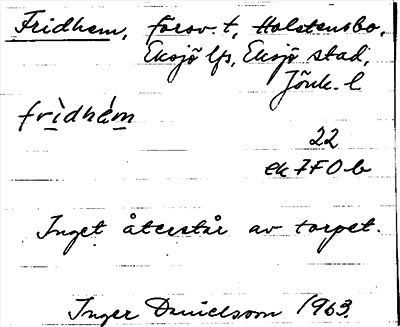 Fridhem, försv. t, Holstensbo,
Eksjö lfs, Eksjö stad,
Jönk. l.
frìdhém
22
ek 7F0b
Inget återstår av torpet.
Inger Danielsson 1963.